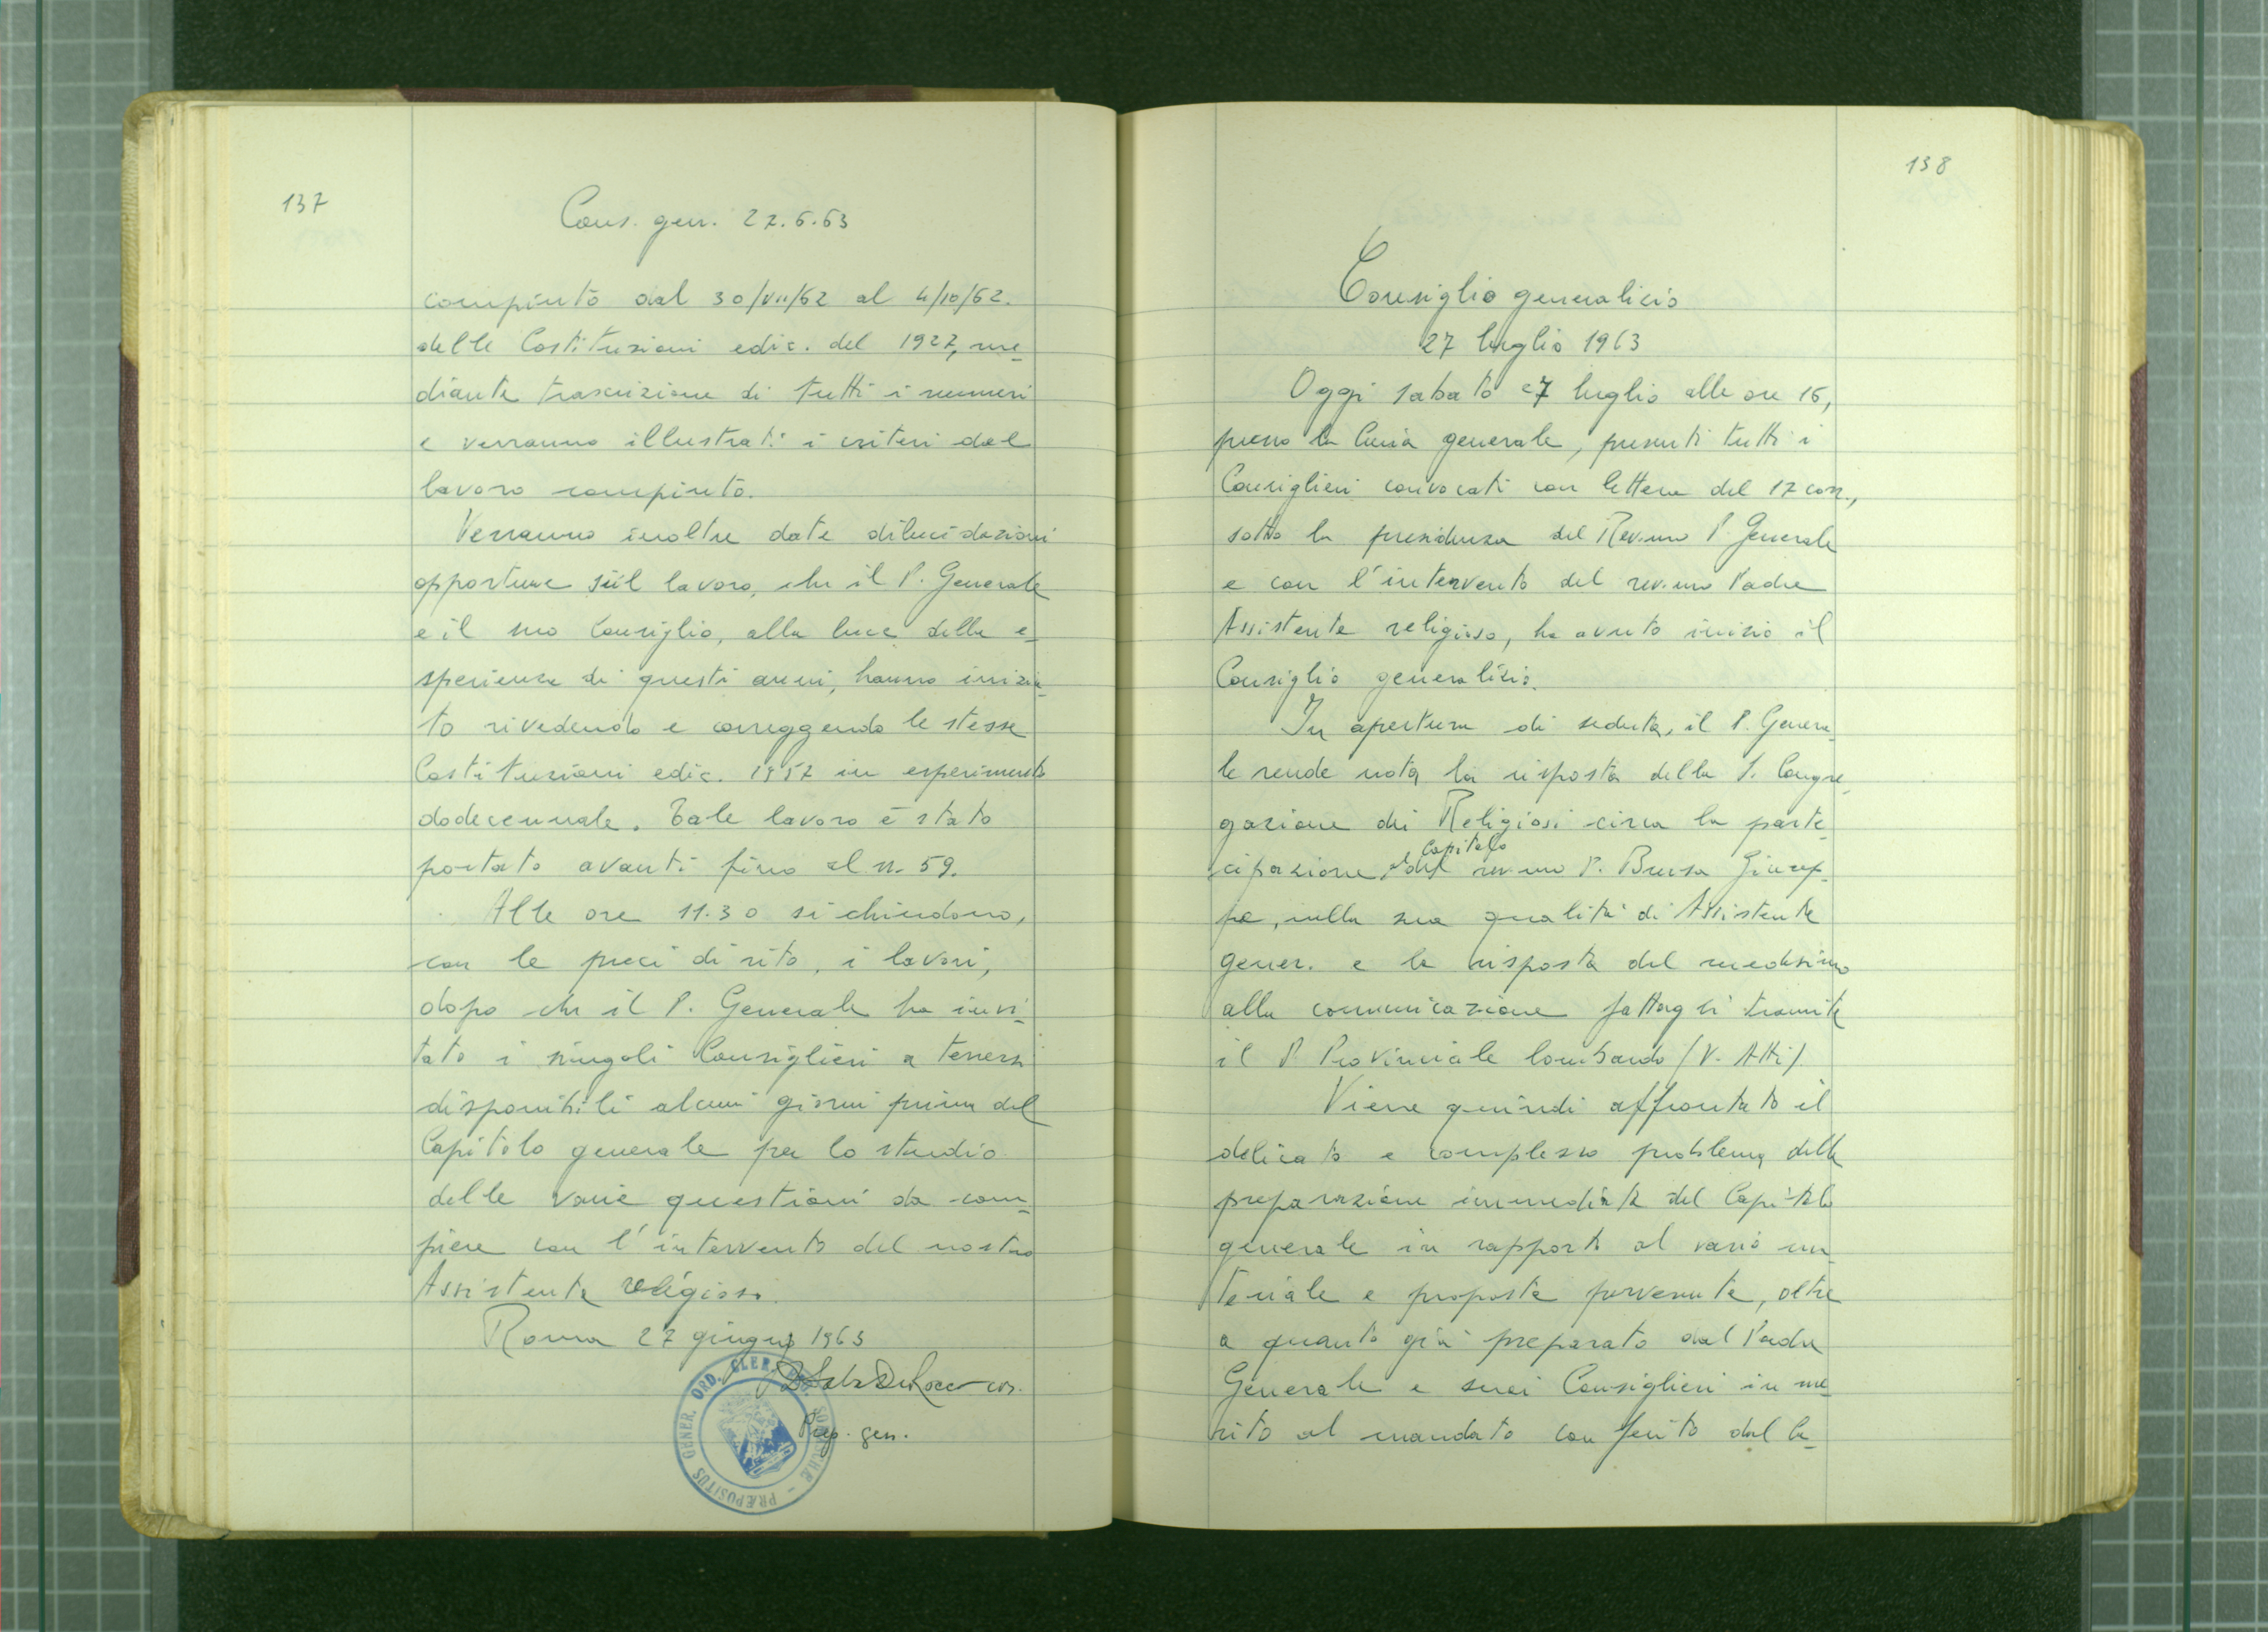 137
Cons. gen. 27.6.63
compiuto dal 30/VII/62 al 4/10/62.
delle Costituzioni ediz. del 1927, me-
diante trascrizione di tutti i numeri
e verranno illustrati i criteri del
lavoro compiuto.
Verranno inoltre date dilucidazioni
opportune sul lavoro, che il P. Generale
e il suo Consiglio, alla luce della e-
sperienza di questi anni, hanno inizia-
to rivedendo e correggendo le stesse
Costituzioni ediz. 1957 in esperimento
dodecennale. Tale lavoro è stato
portato avanti fino al n. 59.
Alle ore 11.30 si chiudono,
con le preci di rito, i lavori,
dopo che il P. Generale ha invi-
tato i singoli Consiglieri a tenersi
disponibili alcuni giorni prima del
Capitolo generale per lo studio
delle varie questioni da com-
piere con l'intervento del nostro
Assistente religioso.
Roma 27 giugno 1963
Prep. gen.
PRÆPOSITUS GENER. ORD. CLER.
138
Consiglio generalicio
27 luglio 1963
Oggi sabato 27 luglio alle ore 16,
presso la Curia generale, presenti tutti i
Consiglieri convocati con lettera del 17 corr.,
sotto la presidenza del Rev.mo P. Generale
e con l'intervento del rev.mo Padre
Assistente religioso, ha avuto inizio il
Consiglio generalizio.
In apertura di seduta, il P. Genera-
le rende nota la risposta della S. Congre-
gazione dei Religiosi circa la parte-
Capitolo
cipazione al del rev.mo P. Brusa Giusep-
pe, nella sua qualità di Assistente
gener. e la risposta del medesimo
alla comunicazione fattagli tramite
il P. Provinciale lombardo (V. Atti)
Viene quindi affrontato il
delicato e complesso problema della
preparazione immediata del Capitolo
generale in rapporto al vario ma-
teriale e proposte pervenute, oltre
a quanto già preparato dal Padre
Generale e suoi Consiglieri in me-
rito al mandato conferito dal Ca-